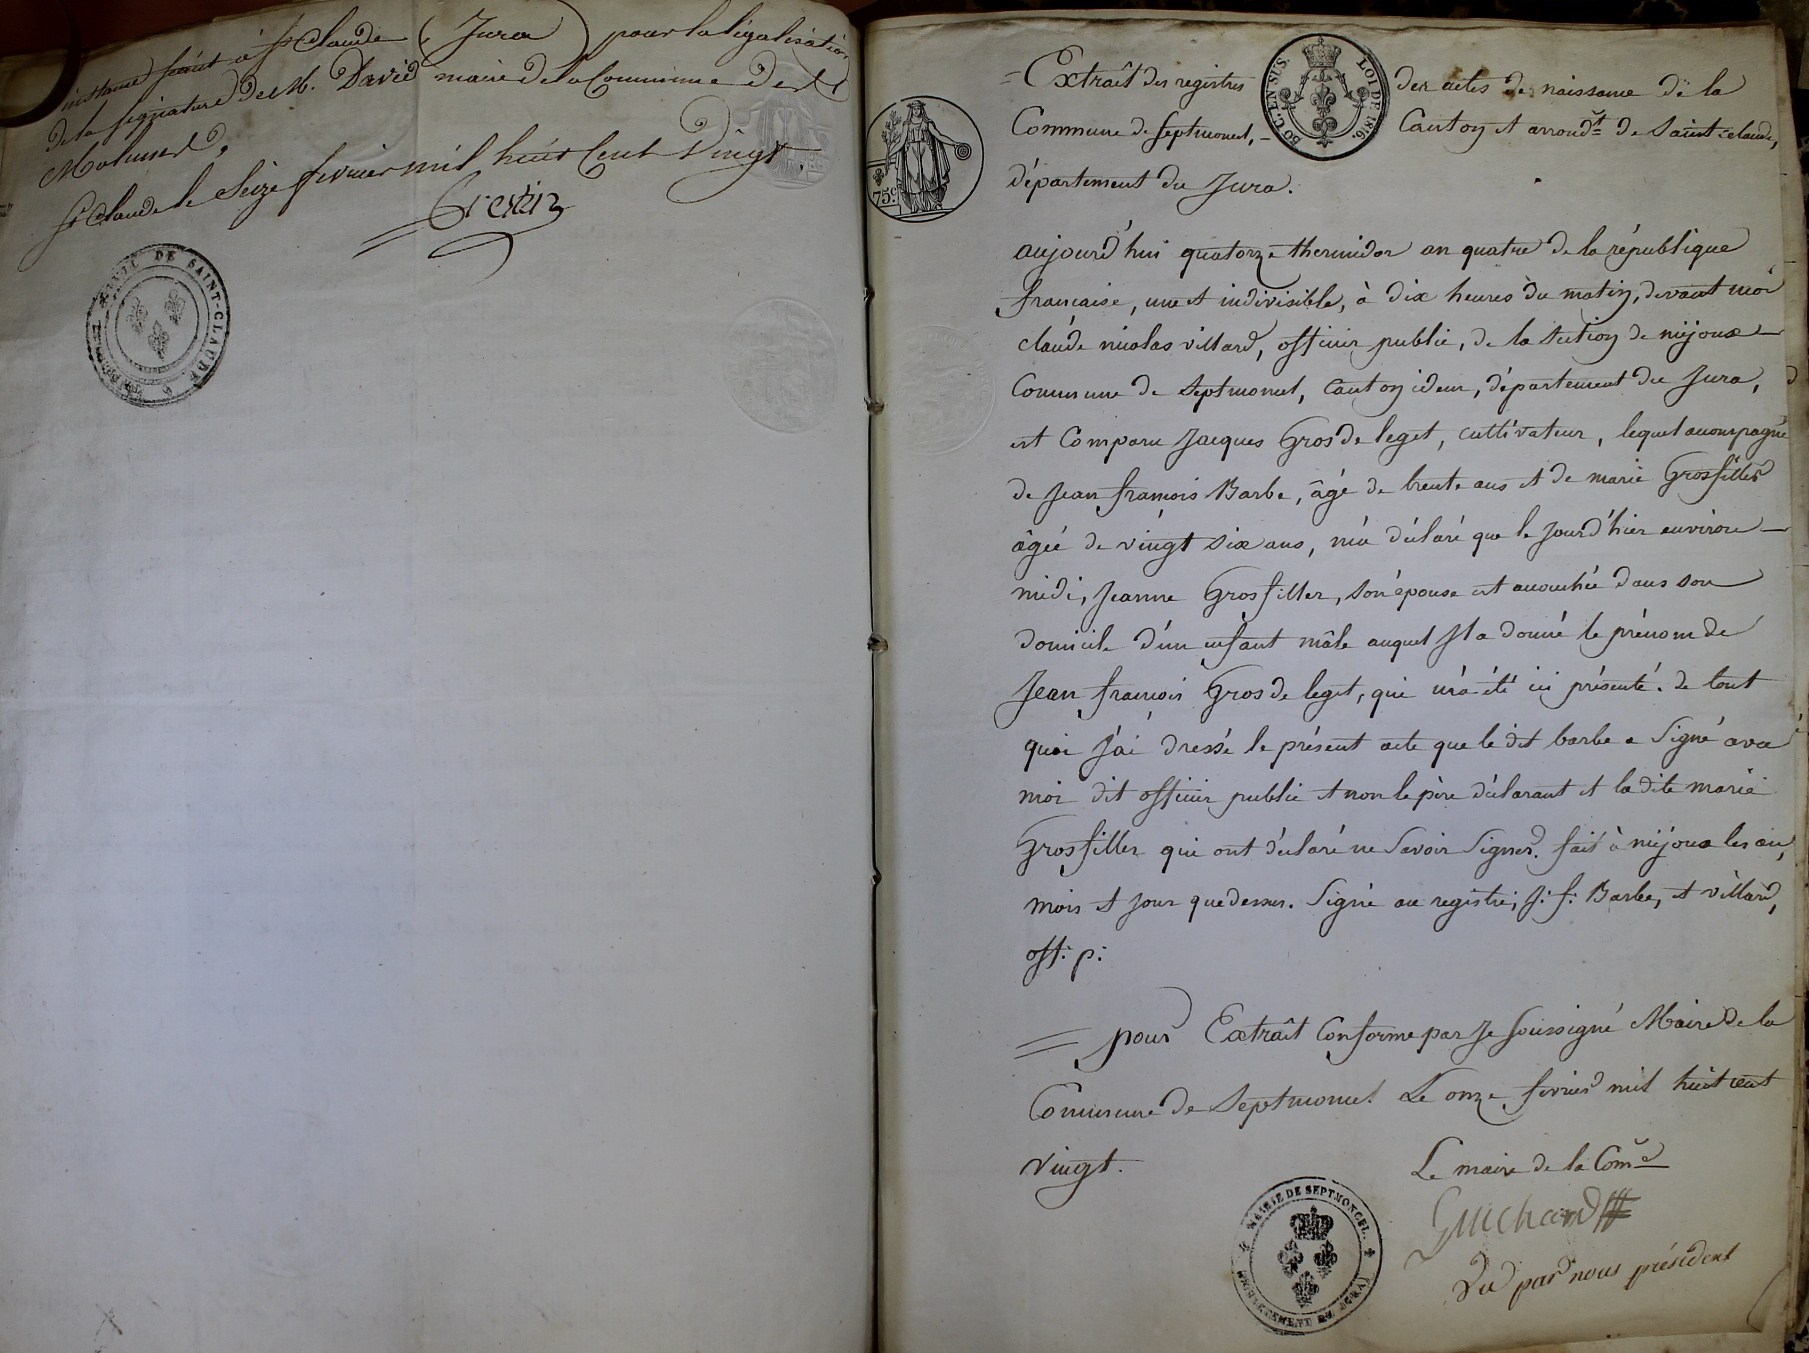 instance séant à St Claude (Jura) pour la légalisation
de la signature de M. David maire de la Commune de
Molunes.
St Claude le Seize fevrier mil huit Cent Vingt.
Crestin
DE SAINT-CLAUDE
= Extraît des registres des actes de naissance de la
50 C. EN SUS. LOI DE 1816.
75 c.
Commune de septmoncel, - Canton et arrondt de Saint-claude,
département du Jura.
aujourd'hui quatorze thermidor an quatre de la république
française, une et indivisible, à dix heures du matin, devant moi
claude nicolas villard, officier public, de la section de mijoux
Commune de Septmoncel, canton idem, département du Jura,
est Comparu Jacques Gros de leget, cultivateur, lequel accompagné
de Jean françois Barbe, âgé de trente ans et de marie Grosfiller
âgée de vingt six ans, m'a déclaré que le jourd'hier environ
midi, Jeanne Grosfiller, son épouse est accouchée dans son
domicile d'un enfant mâle auquel Il a donné le prénom de
Jean françois Gros de leget, qui m'a été ici présenté. de tout
quoi j'ai dressé le présent acte que le dit barbe a Signé avec
moi dit officier public et non le père déclarant et la dite marie
Grosfiller qui ont déclaré ne Savoir Signer. fait à mijoux les an,
mois et jour que dessus. Signé au registre, J: f: Barbe, et villard,
off: p:
= pour Extraît Conforme par Je soussigné Maire de la
Commune de Septmoncel Le onze fevrier mil huit cent
vingt.
Le maire de la Come
Guichard
MAIRIE DE SEPTMONCEL
(DEPARTEMENT DU JURA)
Vu par nous président